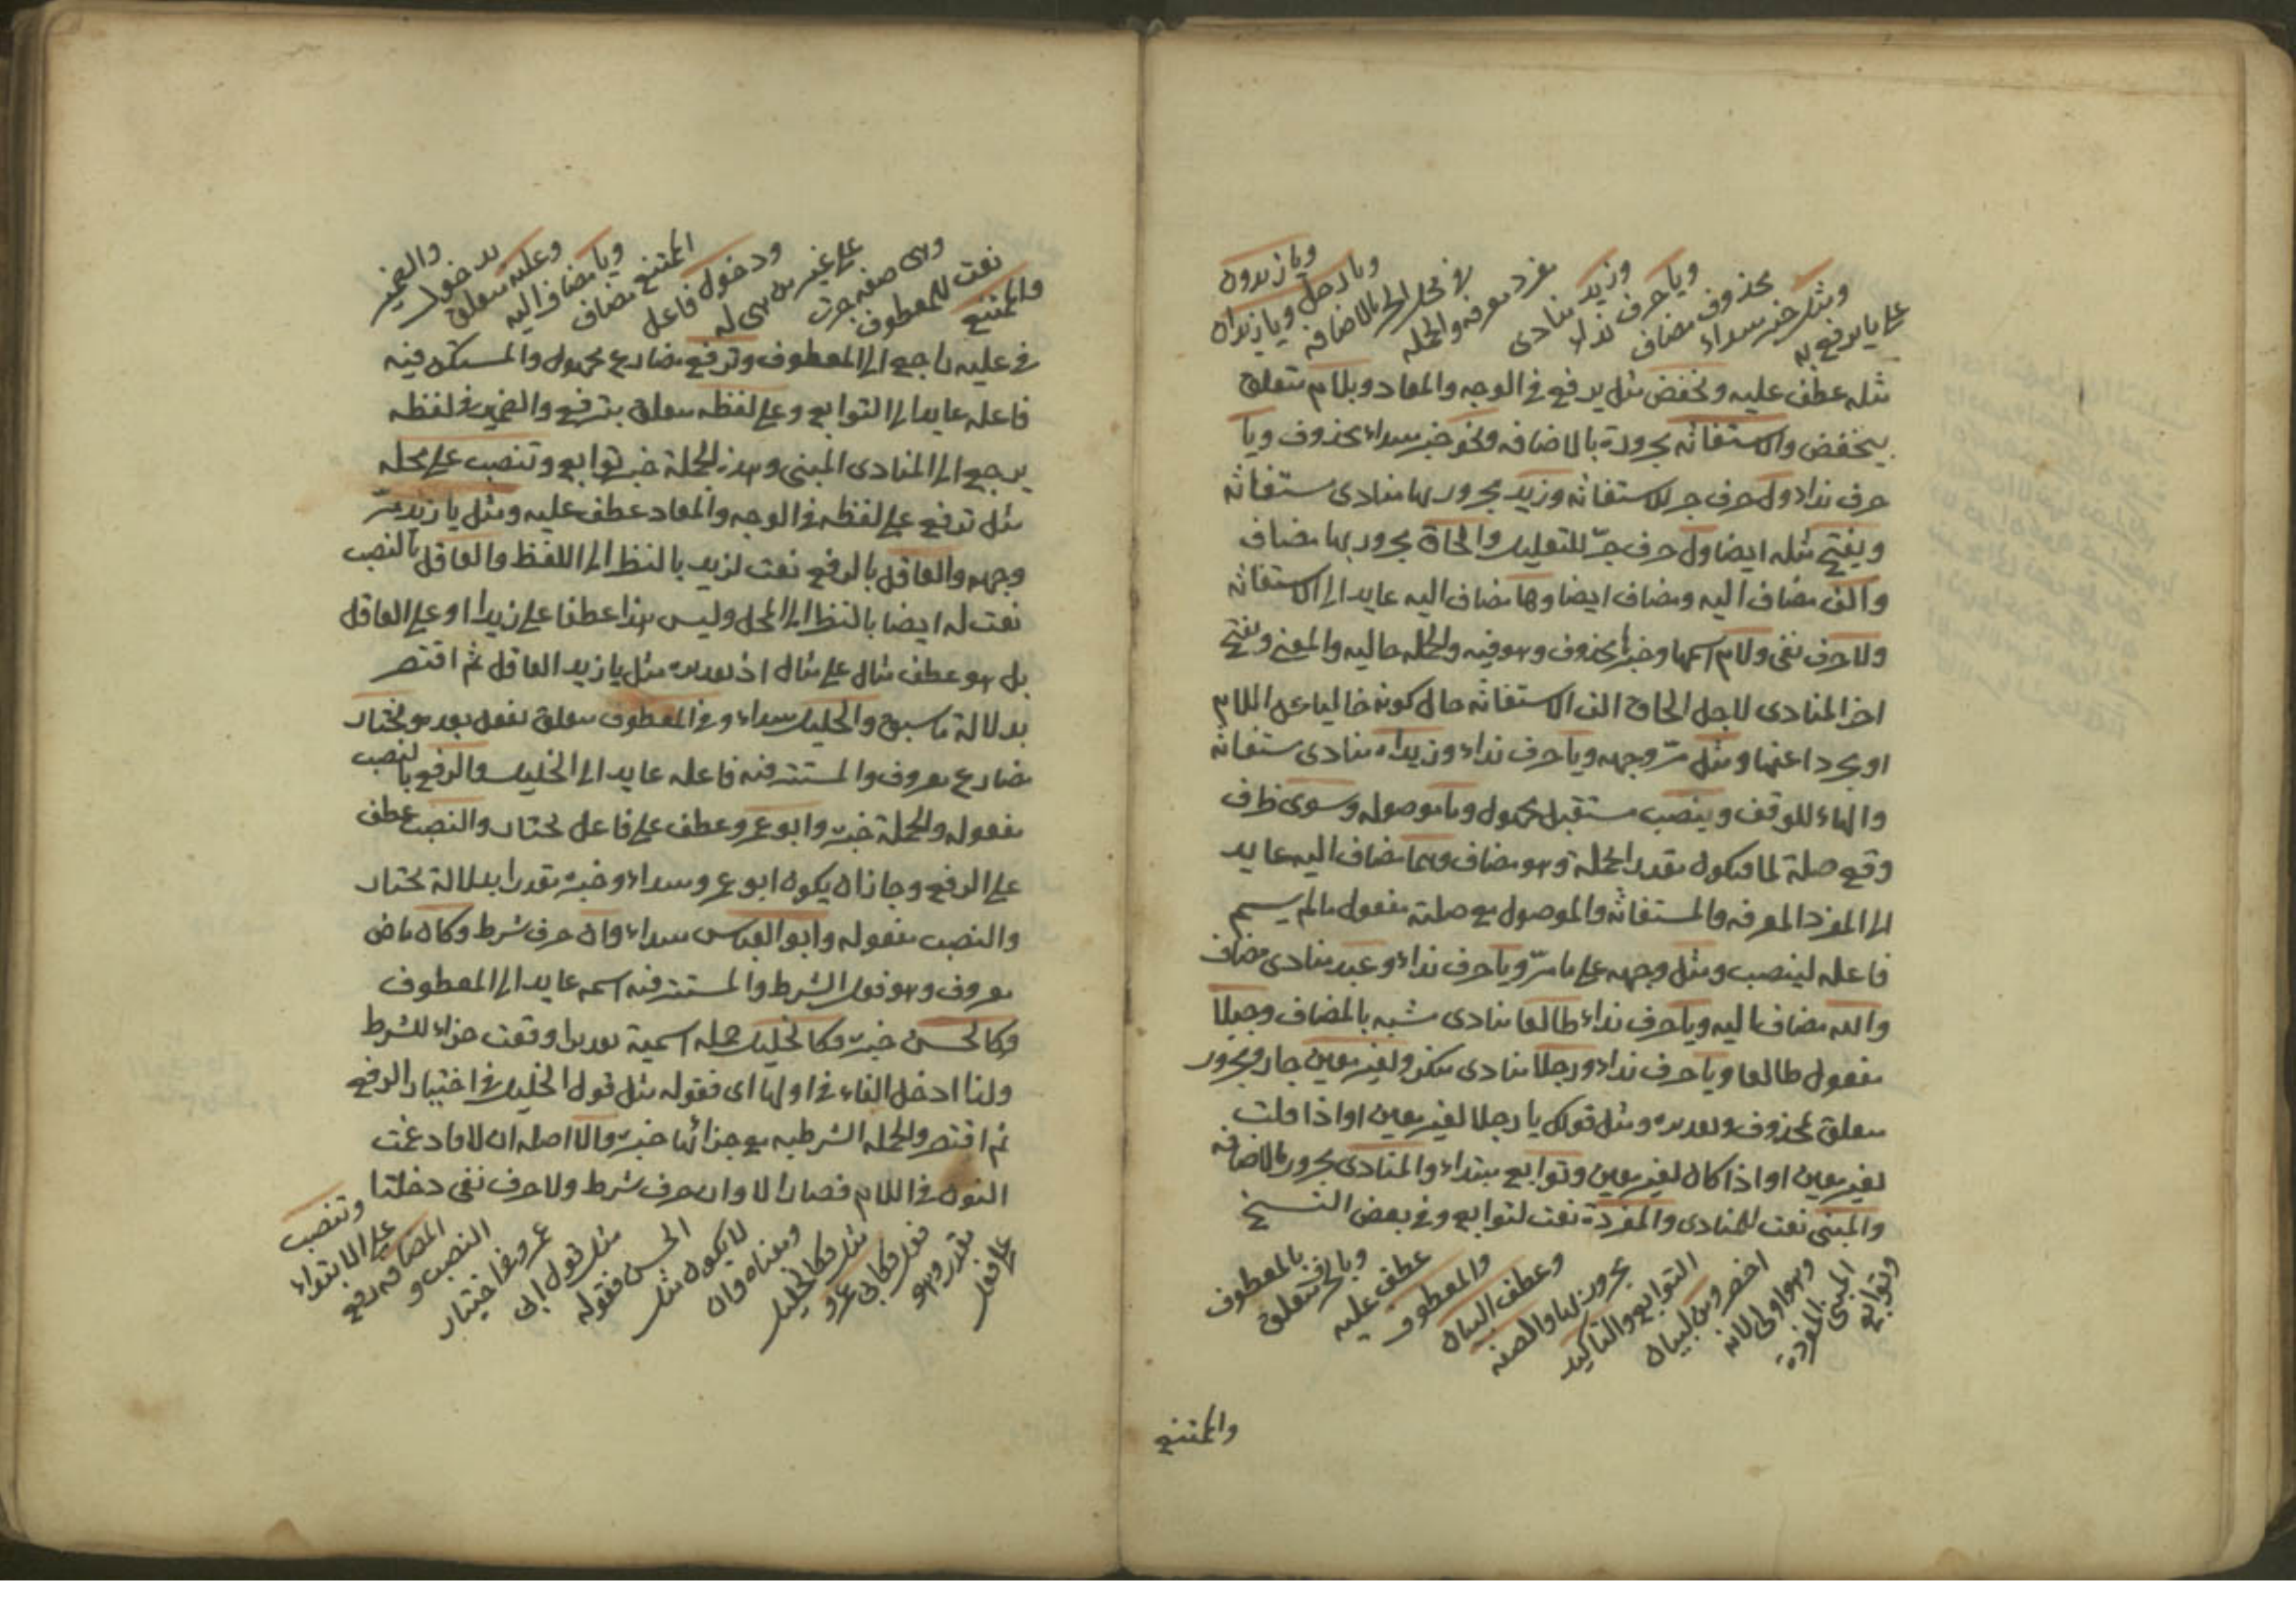 على ما يرفع به
ومثل خبر مبتداء
محذوف مضاف
ويا حرف نداء
وزيد منادى
مفرد معرفه والجمله
في محل الجر بالاضافه
ويا رجل ويا زيدان
ويا زيدون
مثله عطف عليه ويخفض مثل يرفع في الوجه والمعاد وبلام متعلق
بيخفض والاستغاثه مجرورة بالاضافه ونحو خبر مبتداء محذوف ويا
حرف نداء ول حرف جر للاستغاثه وزيد مجرور بها منادى مستغاثه
ويفتح مثله ايضا ول حرف جرّ للتعليل والحاق مجرور بها مضاف
والف مضاف اليه ومضاف ايضا وها مضاف اليه عايد الى الاستغاثه
ولا حرف نفى ولام اسمها وخبرها محذوف وهو فيه والجمله حاليه والمعنى ويفتح
اخر المنادى لاجل الحاق الف الاستغاثه حال كونه خاليا عن اللام
او مجردا عنها ومثل مرّ وجهه ويا حرف نداء وزيداه منادى مستغاثه
والهاء للوقف وينصب مستقبل مجهول وما موصوله وسوى ظرف
وقع صلة لما فيكون مقدرا بجملة وهو مضاف وهما مضاف اليه عايد
الى المفرد المعرفه والمستغاثه والموصول مع صلته مفعول ما لم يسم
فاعله لينصب ومثل وجهه على ما مرّ ويا حرف نداء وعبد منادى مضاف
والله مضاف اليه ويا حرف نداء طالعا منادى مشبه بالمضاف وجبلا
مفعول طالعا ويا حرف نداء ورجلا منادى منكر ولغير معين جار ومجرور
متعلق بمحذوف وتقديره ومثل قولك يا رجلا لغير معين او اذا قلت
لغير معين او اذا كان لغير معين وتوابع مبتداء والمنادى مجرور بالاضافه
والمبنى نعت للمنادى والمفردة نعت لتوابع وفي بعض النسخ
وتوابع
المبنى المفردة
وهو اولى لانه
اخصر ومن لبيان
التوابع والتاكيد
مجرور بها والصفه
وعطف البيان
والمعطوف
عطف عليه
وبالحرف متعلق
بالمعطوف
والممتنع
والممتنع
نعت للمعطوف
وهى صفه جرت
على غير من هى له
ودخول فاعل
الممتنع مضاف
ويا مضاف اليه
وعليه متعلق
بدخول
والضمير
في عليه راجع الى المعطوف وترفع مضارع مجهول والمستكن فيه
فاعله عايد الى التوابع وعلى لفظه متعلق بترفع والضمير في لفظه
يرجع الى المنادى المبنى وهذه الجملة خبر توابع وتنصب على محله
مثل ترفع على لفظه في الوجه والمعاد عطف عليه ومثل يا زيد مرّ
وجهه والعاقل بالرفع نعت لزيد بالنظر الى اللفظ والعاقل بالنصب
نعت له ايضا بالنظر الى المحل وليس هذا عطفا على زيد او على العاقل
بل هو عطف مثال على مثال اذ تقديره مثل يا زيد العاقل ثم اقتصر
بدلالة ما سبق والخليل مبتداء وفي المعطوف متعلق بفعل بعده ويختار
مضارع معروف والمستتر فيه فاعله عايد الى الخليل والرفع بالنصب
مفعوله والجملة خبره وابو عمرو عطف على فاعل يختار والنصب عطف
على الرفع وجاز ان يكون ابو عمرو مبتداء وخبره مقدرا بدلالة يختار
والنصب مفعوله وابو العباس مبتداء وان حرف شرط وكان ماض
معروف وهو فعل الشرط والمستتر فيه اسمه عايد الى المعطوف
وكالحسن خبره فكالخليل جمله اسمية تقديرا وقعت جزاء للشرط
ولذا ادخل الفاء في اولها اى فقوله مثل قول الخليل في اختيار الرفع
ثم اقتصر والجمله الشرطيه مع جزائها خبره والا اصله ان لا فادغمت
النون في اللام فصار الا وان حرف شرط ولا حرف نفى دخلتا
على فعل
مقدر وهو
فعل فكابى عمرو
مثل فكالخليل
ومعناه وان
لا يكون مثل
الحسن فقوله
مثل قول ابى
عمرو في اختيار
النصب و
المضافه ترفع
على الابتداء
وتنصب